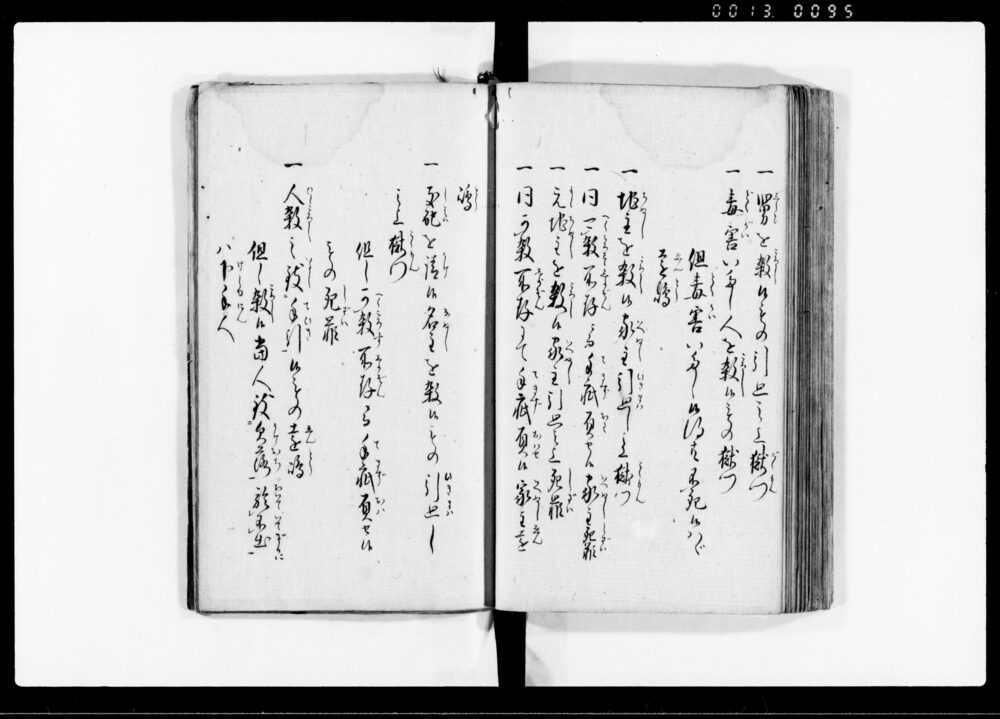 0013 0095
一 舅を殺候もの引廻之上獄門
一 毒害いたし人を殺候もの獄門
但毒害いたし候得共不死候ハヾ
遠嶋
一 地主を殺候家主引廻之上獄門
一 同可殺所存ニ而手疵負せ候家主死罪
一 元地主を殺候家主引廻之上死罪
一 同可殺所存ニて手疵負せ候家主遠
嶋
一 支配を請候名主を殺候もの引廻し
之上獄門
但し可殺所存ニ而手疵負せ候
もの死罪
一 人殺之致手引候もの遠嶋
但し殺候当人致欠落於不出
ハ下手人